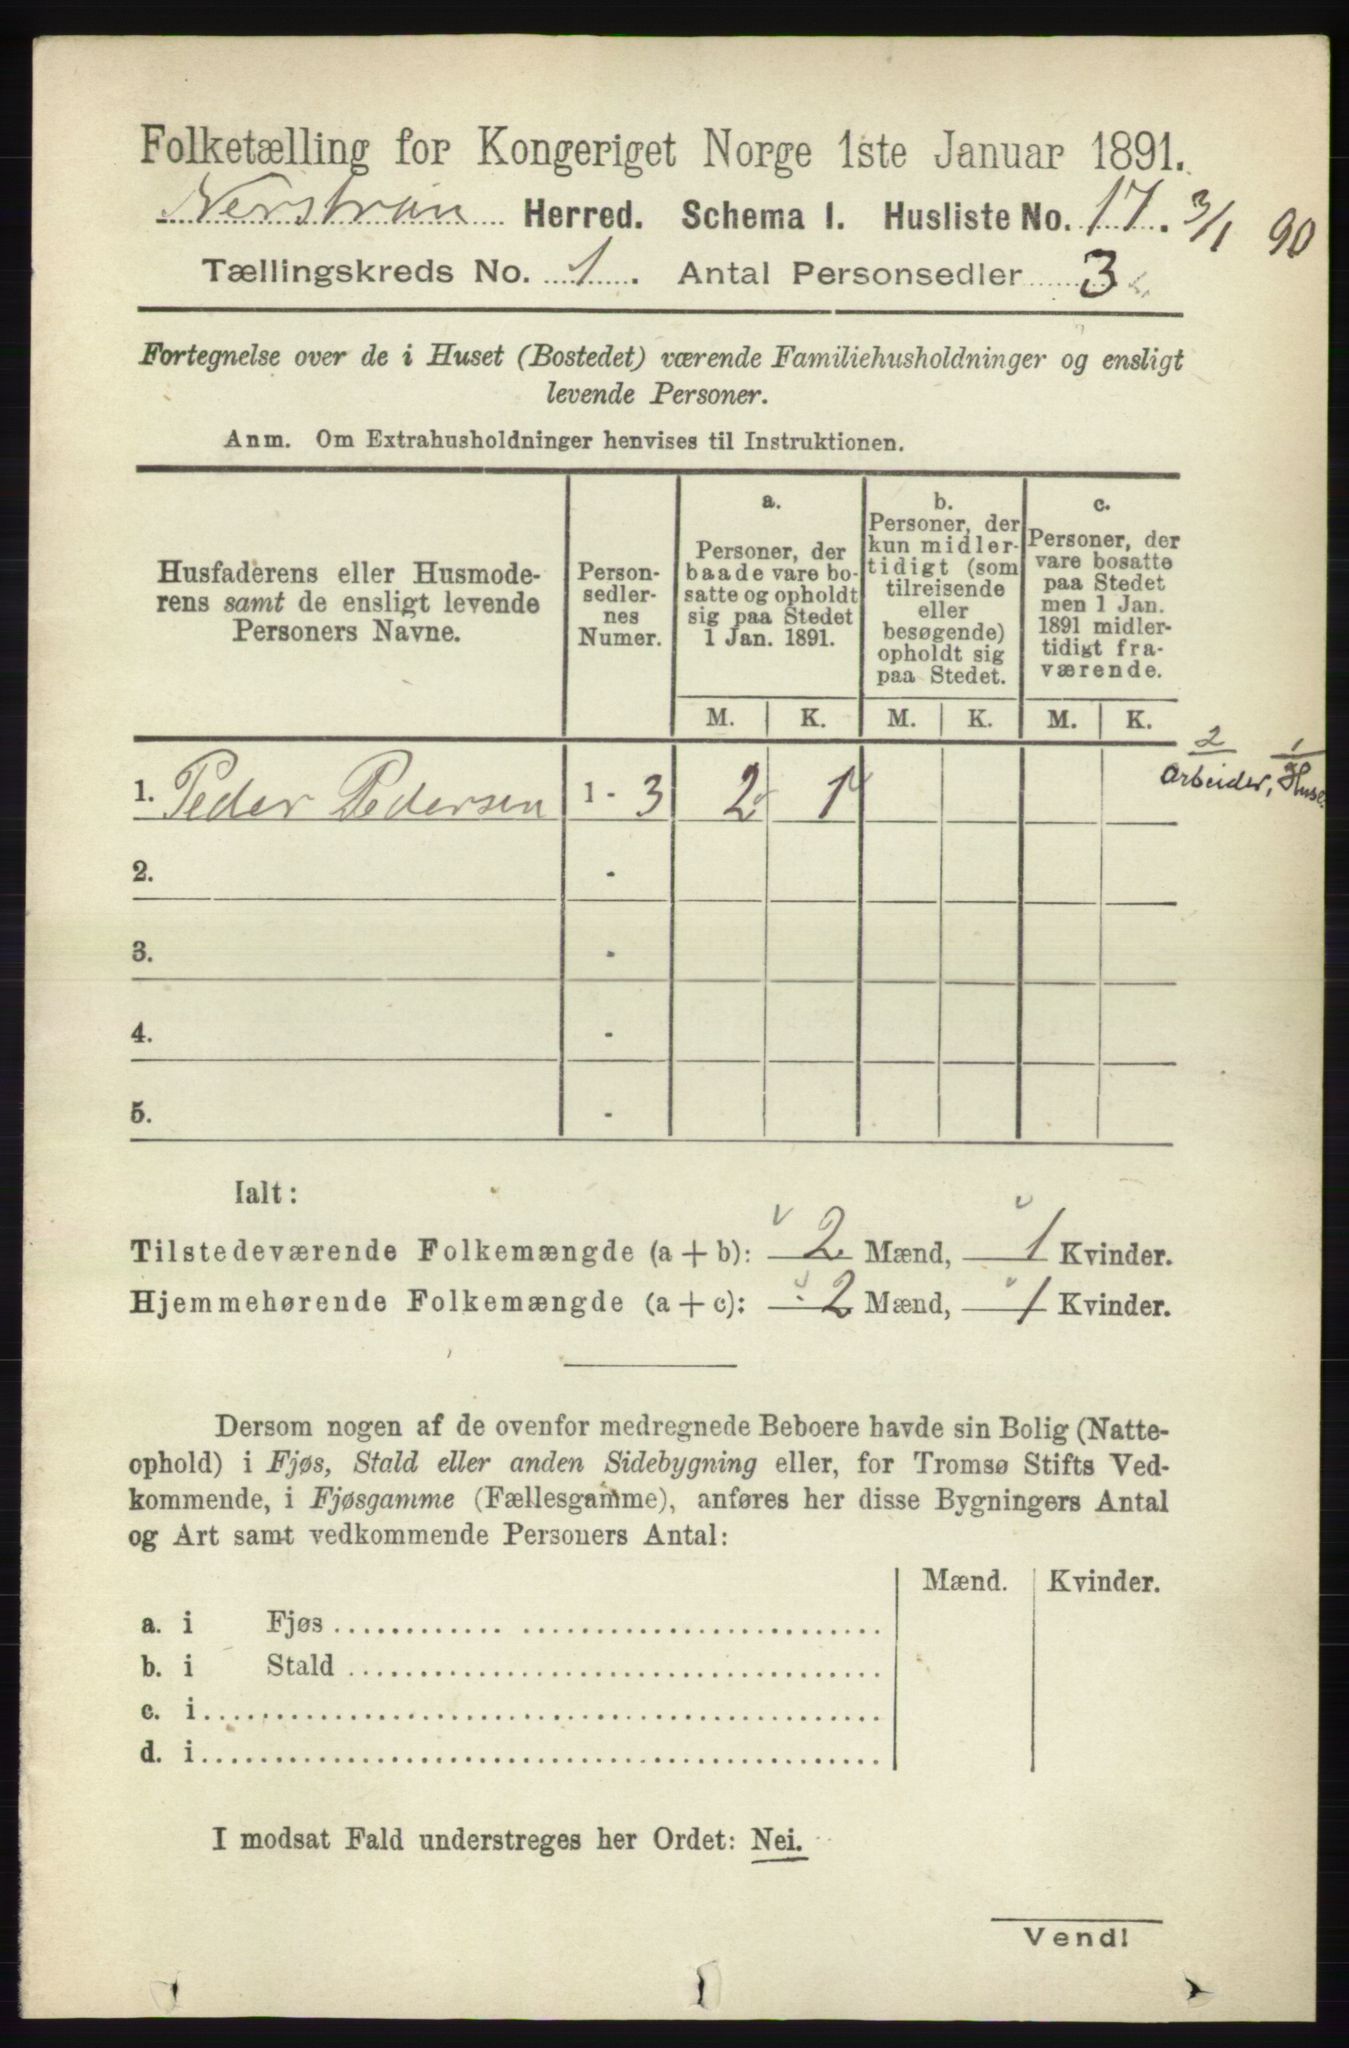 Folketælling for Kongeriget Norge 1ste Januar 1891.
Nerstran Herred. Schema I. Husliste No. 17. 3/1 90
Tællingskreds No. 1. Antal Personsedler 3
Fortegnelse over de i Huset (Bostedet) værende Familiehusholdninger og ensligt
levende Personer.
Anm. Om Extrahusholdninger henvises til Instruktionen.
Husfaderens eller Husmode-
rens samt de ensligt levende
Personers Navne.
Person-
sedler-
nes
Numer.
a.
Personer, der
baade vare bo-
satte og opholdt
sig paa Stedet
1 Jan. 1891.
b.
Personer, der
kun midler-
tidigt (som
tilreisende
eller
besøgende)
opholdt sig
paa Stedet.
c.
Personer, der
vare bosatte
paa Stedet
men 1 Jan.
1891 midler-
tidigt fra-
værende.
M. K. M. K. M. K.
2 1
1. Peder Pedersen 1 - 3 2 1 Arbeider, Huse.
2. -
3. -
4. -
5. -
Ialt:
Tilstedeværende Folkemængde (a + b): 2 Mænd, 1 Kvinder.
Hjemmehørende Folkemængde (a + c): 2 Mænd, 1 Kvinder.
Dersom nogen af de ovenfor medregnede Beboere havde sin Bolig (Natte-
ophold) i Fjøs, Stald eller anden Sidebygning eller, for Tromsø Stifts Ved-
kommende, i Fjøsgamme (Fællesgamme), anføres her disse Bygningers Antal
og Art samt vedkommende Personers Antal:
Mænd. Kvinder.
a. i Fjøs
b. i Stald
c. i
d. i
I modsat Fald understreges her Ordet: Nei.
Vend!